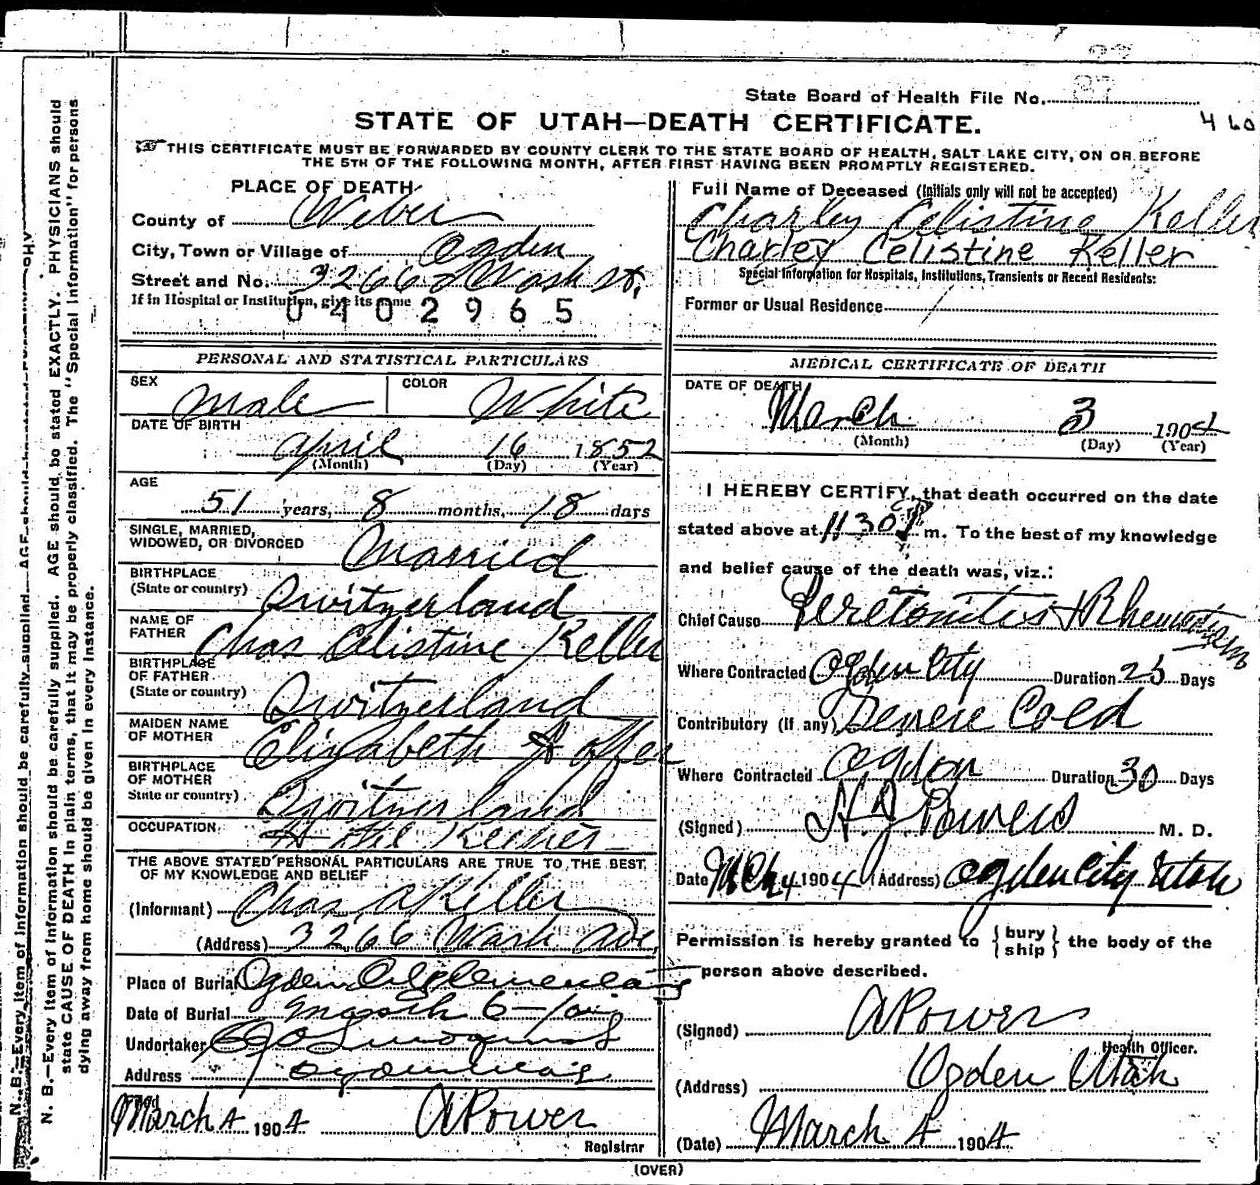 State Board of Health File No. 37
STATE OF UTAH—DEATH CERTIFICATE.
460
THIS CERTIFICATE MUST BE FORWARDED BY COUNTY CLERK TO THE STATE BOARD OF HEALTH, SALT LAKE CITY, ON OR BEFORE
THE 5TH OF THE FOLLOWING MONTH, AFTER FIRST HAVING BEEN PROMPTLY REGISTERED.
PLACE OF DEATH
County of Weber
City, Town or Village of Ogden
Street and No. 3266 Wash
If in Hospital or Institution, give its name
0402965
PERSONAL AND STATISTICAL PARTICULARS
SEX Male COLOR White
DATE OF BIRTH
April 16 1852
(Month) (Day) (Year)
AGE
51 years, 8 months, 18 days
SINGLE, MARRIED,
WIDOWED, OR DIVORCED Married
BIRTHPLACE
(State or country) Switzerland
NAME OF
FATHER Chas Celistine Keller
BIRTHPLACE
OF FATHER
(State or country) Switzerland
MAIDEN NAME
OF MOTHER Elizabeth
BIRTHPLACE
OF MOTHER
State or country) Switzerland
OCCUPATION Hotel Keeper
THE ABOVE STATED PERSONAL PARTICULARS ARE TRUE TO THE BEST
OF MY KNOWLEDGE AND BELIEF
(Informant) Chas A Keller
(Address) 3266 Wash Av.
Place of Burial Ogden City Cemetery
Date of Burial March 6
Undertaker
Address Ogden
Filed
March 4 1904 A Power
Registrar
Full Name of Deceased (Initials only will not be accepted)
Charley Celistine Keller
Charley Celistine Keller
Special Information for Hospitals, Institutions, Transients or Recent Residents:
Former or Usual Residence
MEDICAL CERTIFICATE OF DEATH
DATE OF DEATH
March 3 1904
(Month) (Day) (Year)
I HEREBY CERTIFY, that death occurred on the date
stated above at 11 30 P m. To the best of my knowledge
and belief cause of the death was, viz.:
Chief Cause Peretonites + Rheumatism
Where Contracted Ogden City Duration 25 Days
Contributory (if any) Severe Cold
Where Contracted Ogden Duration 30 Days
(Signed) H J Powers M. D.
Date Mch 4 1904 (Address) Ogden City Utah
Permission is hereby granted to {bury
ship} the body of the
person above described.
(Signed) A Power
Health Officer.
(Address) Ogden Utah
(Date) March 4 1904
(OVER)
N. B.—Every item of information should be carefully supplied. AGE should be stated EXACTLY. PHYSICIANS should
state CAUSE OF DEATH in plain terms, that it may be properly classified. The "Special Information" for persons
dying away from home should be given in every instance.
N. B.—Every item of information should be carefully supplied.